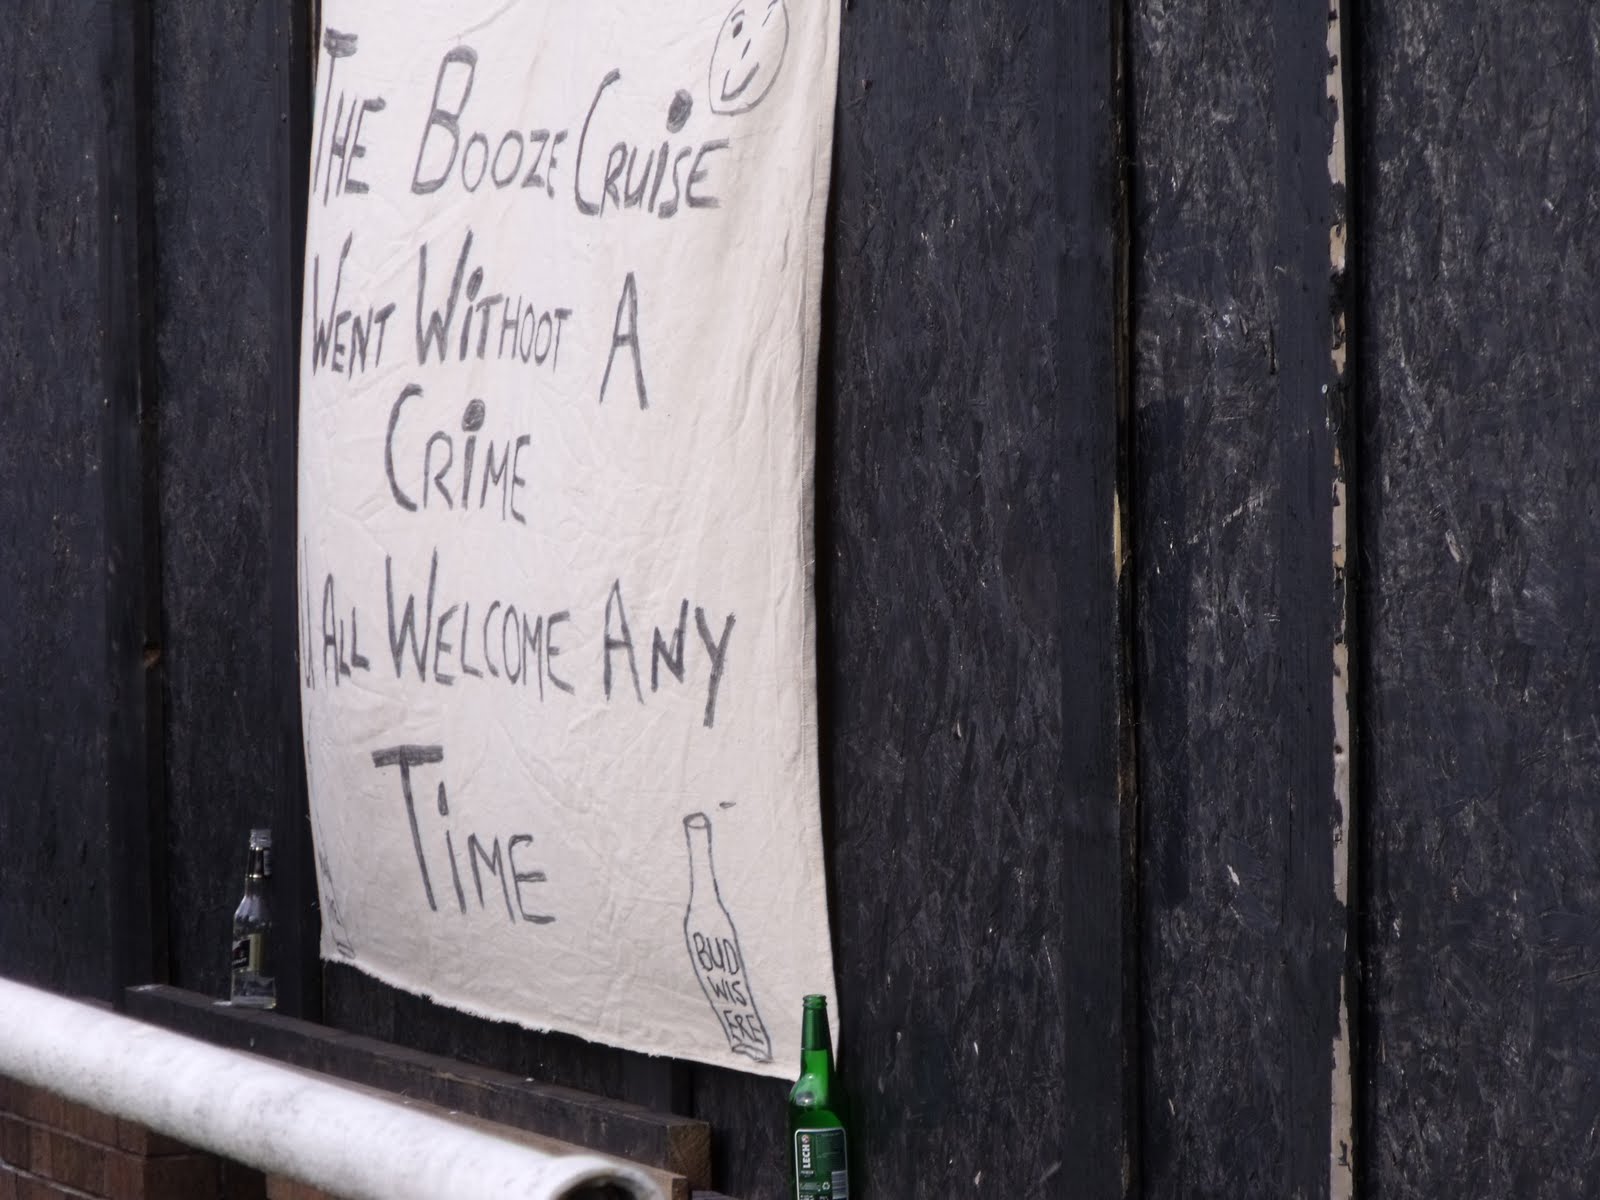 THE BOOZE CRUiSE
WENT WiTHOOT A
CRiME
U ALL WELCOME ANY
TiME
BUD
WIS
LECH